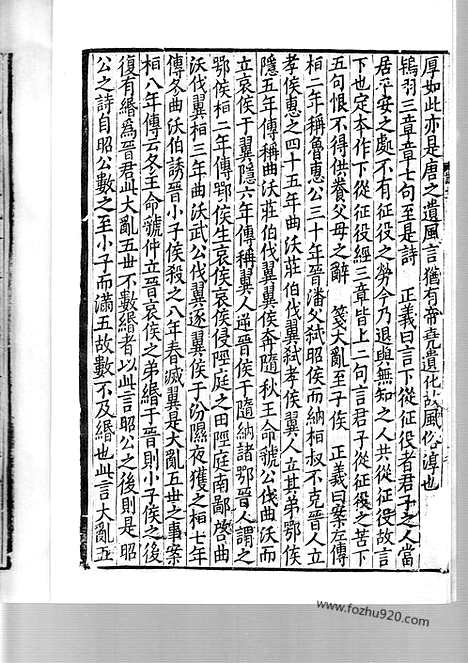 厚如此亦是唐之遺風言猶有帝堯遺化故風俗淳也
鴇羽三章章七句至是詩　正義曰言下從征役者君子之人當
居平安之處不有征役之勞今乃退與無知之人共從征役故言
下也定本作下從征役經三章皆上二句言君子從征役之苦下
五句恨不得供養父母之辭　箋大亂至子侯　正義曰案左傳
桓二年稱魯惠公三十年晉潘父弒昭侯而納桓叔不克晉人立
孝侯惠之四十五年曲沃莊伯伐翼弒孝侯翼人立其弟鄂侯
隱五年傳稱曲沃莊伯伐翼翼侯奔隨秋王命虢公伐曲沃而
立哀侯于翼隱六年傳稱翼人逆晉侯于隨納諸鄂晉人謂之
鄂侯桓二年傳鄂侯生哀侯哀侯侵陘庭之田陘庭南鄙啓曲
沃伐翼桓三年曲沃武公伐翼逐翼侯于汾隰夜獲之桓七年
傳冬曲沃伯誘晉小子侯殺之八年春滅翼是大亂五世之事案
桓八年傳云冬王命虢仲立晉哀侯之弟緡于晉則小子侯之後
復有緡爲晉君此大亂五世不數緡者以此言昭公之後則是昭
公之詩自昭公數之至小子而滿五故數不及緡也此言大亂五
www.fozhu920.com